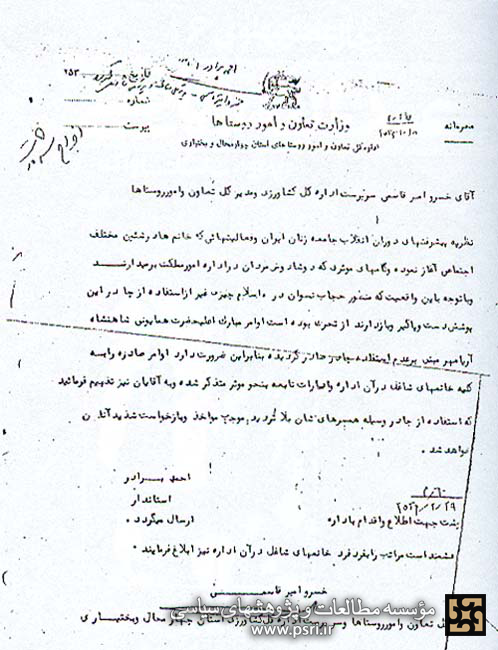 وزارت تعاون و امور روستاها
محرمانه
شماره
پیوست
اداره کل تعاون و امور روستاهای استان چهارمحال و بختیاری
آقای خسرو امیر قاسمی سرپرست اداره کل کشاورزی و مدیر کل تعاون و امور روستاها
نظر به پیشرفتهای دوران انقلاب جامعه زنان ایران و فعالیتهائی که خانم ها در شئون مختلف
اجتماعی آغاز نموده و گامهای موثری که دوشادوش مردان در اداره امور مملکت برمیدارند
و با توجه باین واقعیت که منظور حجاب نسوان در اسلام چیزی غیر از استفاده از چادر این
پوشش دست و پاگیر و بازدارنده از تحرک بوده است اوامر مبارک اعلیحضرت همایونی شاهنشاه
آریامهر مبنی بر عدم استفاده چادر صادر گردیده بنابراین ضرورت دارد اوامر صادره را به
کلیه خانمهای شاغل در آن اداره و ادارات تابعه بنحو موثر متذکر شده و به آقایان نیز تفهیم فرمائید
که استفاده از چادر وسیله همسرهای شان بلا تردید موجب مواخذه و بازخواست شدید آنان
خواهد شد .
احمد برادر
استاندار
جهت اطلاع و اقدام باداره
ارسال میگردد .
خواهشمند است مراتب را بفرد فرد خانمهای شاغل در آن اداره نیز ابلاغ فرمایند .
خسرو امیر قاسمی
کل تعاون و امور روستاها و سرپرست اداره کل کشاورزی استان چهار محال و بختیاری
مؤسسه مطالعات و پژوهشهای سیاسی
www.psri.ir